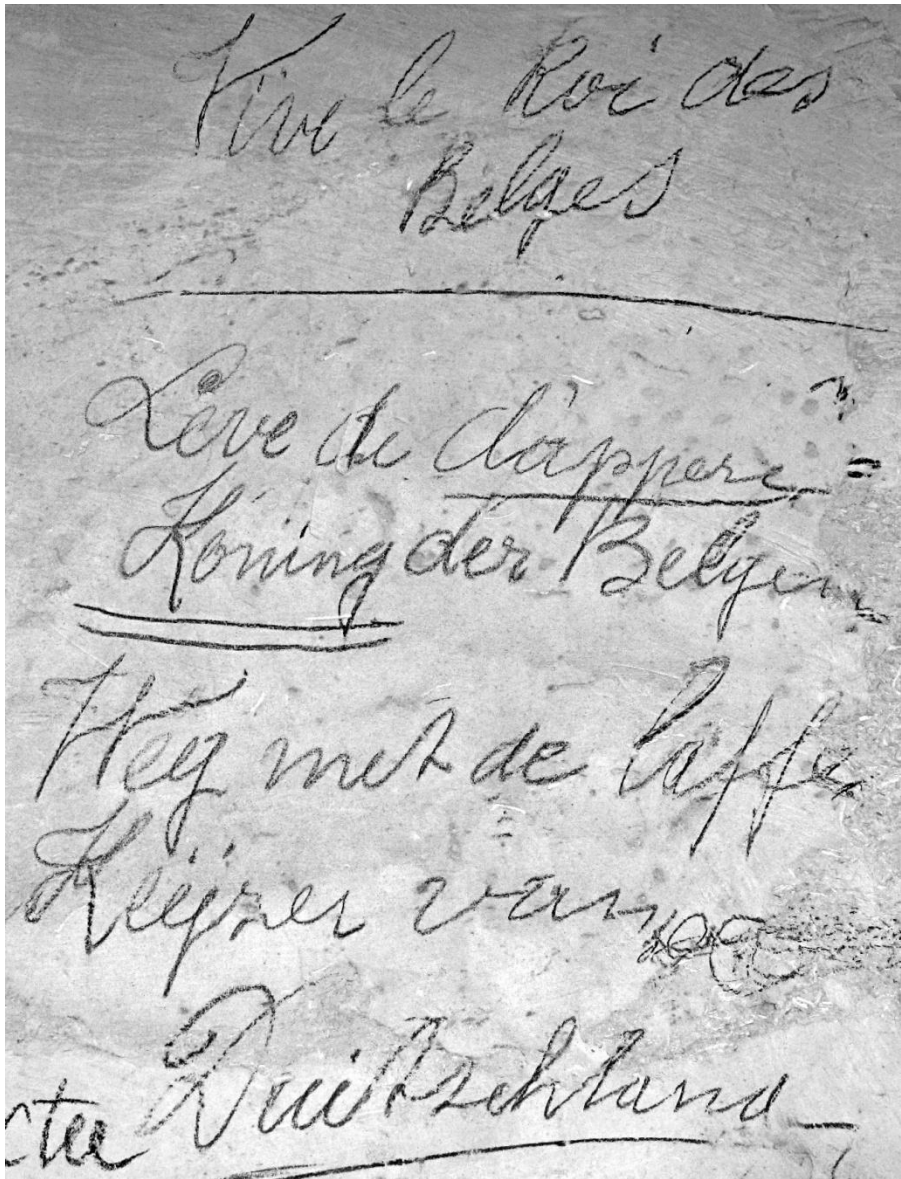 Vive le Roi des
Belges
Leve de dappere
Koning der Belgen
Weg met de laffe
Keijzer van
Duitschland